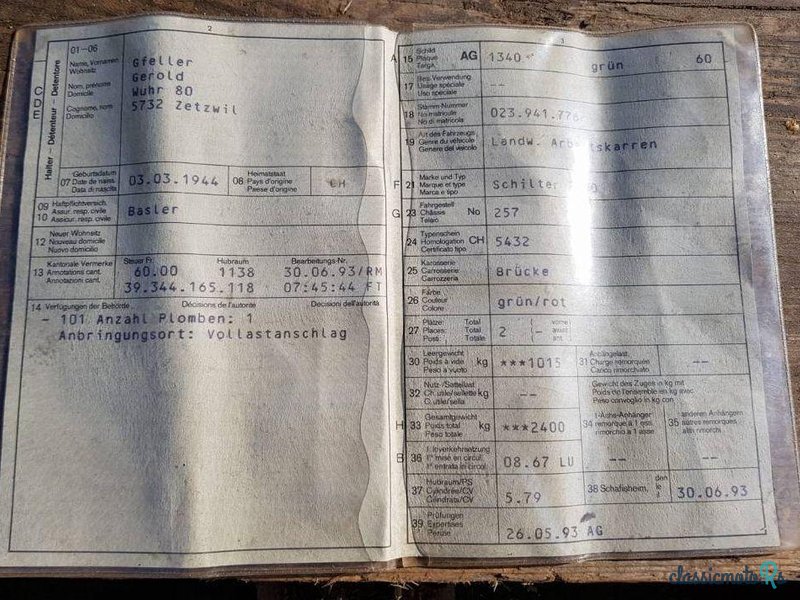 2
01-06
Name, Vornamen
Wohnsitz
Nom, prénoms
Domicile
Cognome, nomi
Domicilio
Halter – Détenteur – Detentore
C
D
E
Gfeller
Gerold
Wuhr 80
5732 Zetzwil
07 Geburtsdatum
Date de naiss.
Data di nascita
03.03.1944
08 Heimatstaat
Pays d'origine
Paese d'origine
CH
09 Haftpflichtversich.
10 Assur. resp. civile
Assicur. resp. civile
Basler
12 Neuer Wohnsitz
Nouveau domicile
Nuovo domicilio
13 Kantonale Vermerke
Annotations cant.
Annotazioni cant.
Steuer Fr. Hubraum Bearbeitungs-Nr.
60.00 1138 30.06.93/RM
39.344.165.118 07:45:44 FT
14 Verfügungen der Behörde Décisions de l'autorité Decisioni dell'autorità
- 101 Anzahl Plomben: 1
Anbringungsort: Vollastanschlag
3
A 15 Schild
Plaque
Targa
AG 1340 grün 60
17 Bes. Verwendung
Usage spéciale
Uso speciale
--
18 Stamm-Nummer
No matricule
No di matricola
023.941.776
19 Art des Fahrzeugs
Genre du véhicule
Genere del veicolo
Landw. karren
F 21 Marke und Typ
Marque et type
Marca e tipo
Schilter
G 23 Fahrgestell
Châssis No
Telaio
257
24 Typenschein
Homologation CH
Certificato tipo
5432
25 Karosserie
Carrosserie
Carrozzeria
Brücke
26 Farbe
Couleur
Colore
grün/rot
27 Plätze: Total
Places: Total
Posti: Totale
2 (-- vorne
avant
ant.
30 Leergewicht
Poids à vide kg
Peso a vuoto
***1015
31 Anhängelast
Charge remorquée
Carico rimorchiato
--
32 Nutz-/Sattellast
Ch. utile/sellette kg
C. utile/sella
--
Gewicht des Zuges in kg mit
Poids de l'ensemble en kg avec
Peso convoglio in kg con
H 33 Gesamtgewicht
Poids total kg
Peso totale
***2400
34 1-Achs-Anhänger
remorque à 1 ess.
rimorchio a 1 asse
--
35 anderen Anhängern
autres remorques
altri rimorchi
--
B 36 1. Inverkehrsetzung
1re mise en circul.
1a entrata in circol.
08.67 LU
37 Hubraum/PS
Cylindrée/CV
Cilindrata/CV
5.79
38 Schafisheim, den
le
30.06.93
39 Prüfungen
Expertises
Perizie
26.05.93 AG
classicmotoRs